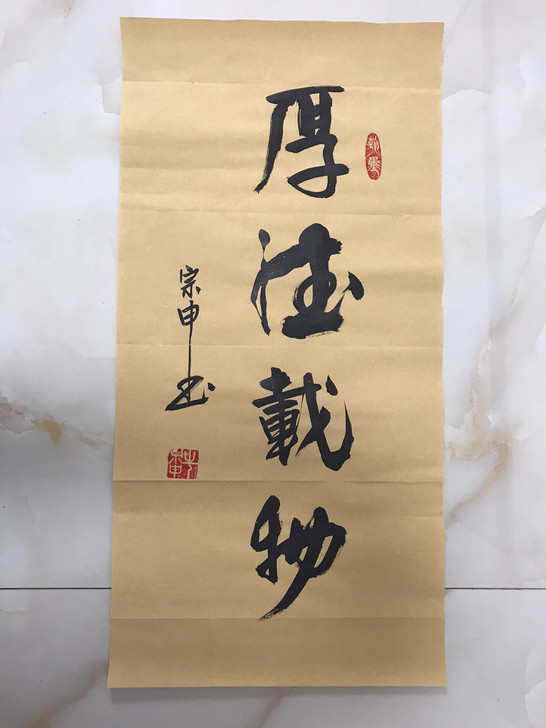 厚德載物
宗申书